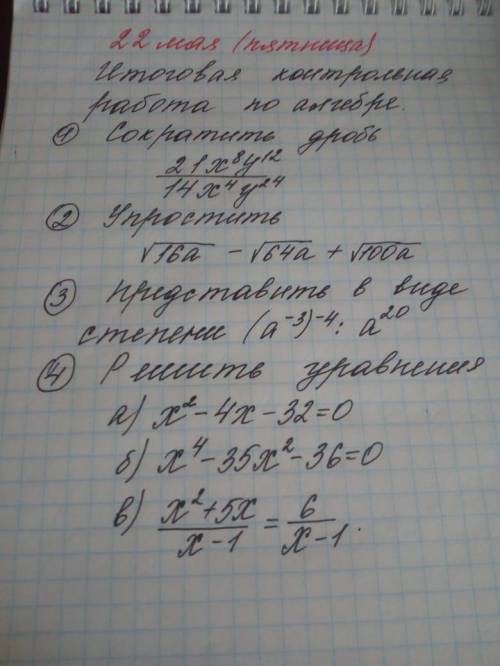 22 мая (пятница)
Итоговая контрольная
работа по алгебре.
① Сократить дробь
21x⁸y¹²
14x⁴y²⁴
② Упростить
√16a - √64a + √100a
③ Представить в виде
степени (a⁻³)⁻⁴ : a²⁰
④ Решить уравнения
а) x² - 4x - 32 = 0
б) x⁴ - 35x² - 36 = 0
в) (x² + 5x)/(x - 1) = 6/(x - 1).